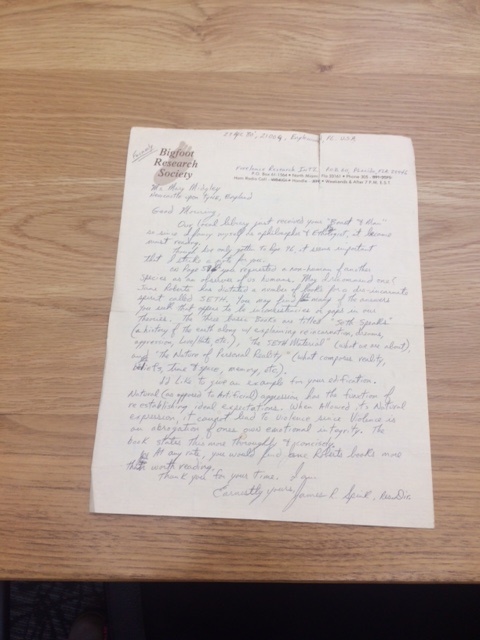 Bigfoot
Research
Society
Ms. Mary Midgley
Newcastle upon Tyne, England
Good Morning,
Our local library just received your "Beast & Man"
so since I fancy myself a philosopher & ethologist, it became
must reading.
Though I've only gotten to page 56, it seems important
that I strike a note to you.
On page you requested a non-human of another
species as an observer of us humans. May I recommend one?
Jane Roberts has dictated a number of books for a discarnate
spirit called SETH. You may find many of the answers
you seek that appear to be inconsistencies or gaps in our
theories. The three basic books are titled "Seth Speaks"
(a history of the earth along w/ explaining reincarnation, dreams,
aggression, love/hate, etc.), "The SETH Material" (what we are about),
and "The Nature of Personal Reality" (what composes reality,
time & space, memory, etc).
I'd like to give an example for your edification.
Natural (as opposed to Artificial) aggression has the function of
re-establishing ideal expectations. When allowed its natural
expression, it cannot lead to violence since violence is
an abrogation of ones own emotional integrity. The
book states this more thoroughly & concisely.
At any rate, you would find Jane Roberts books more
than worth reading.
Thank you for your time.
Earnestly yours,